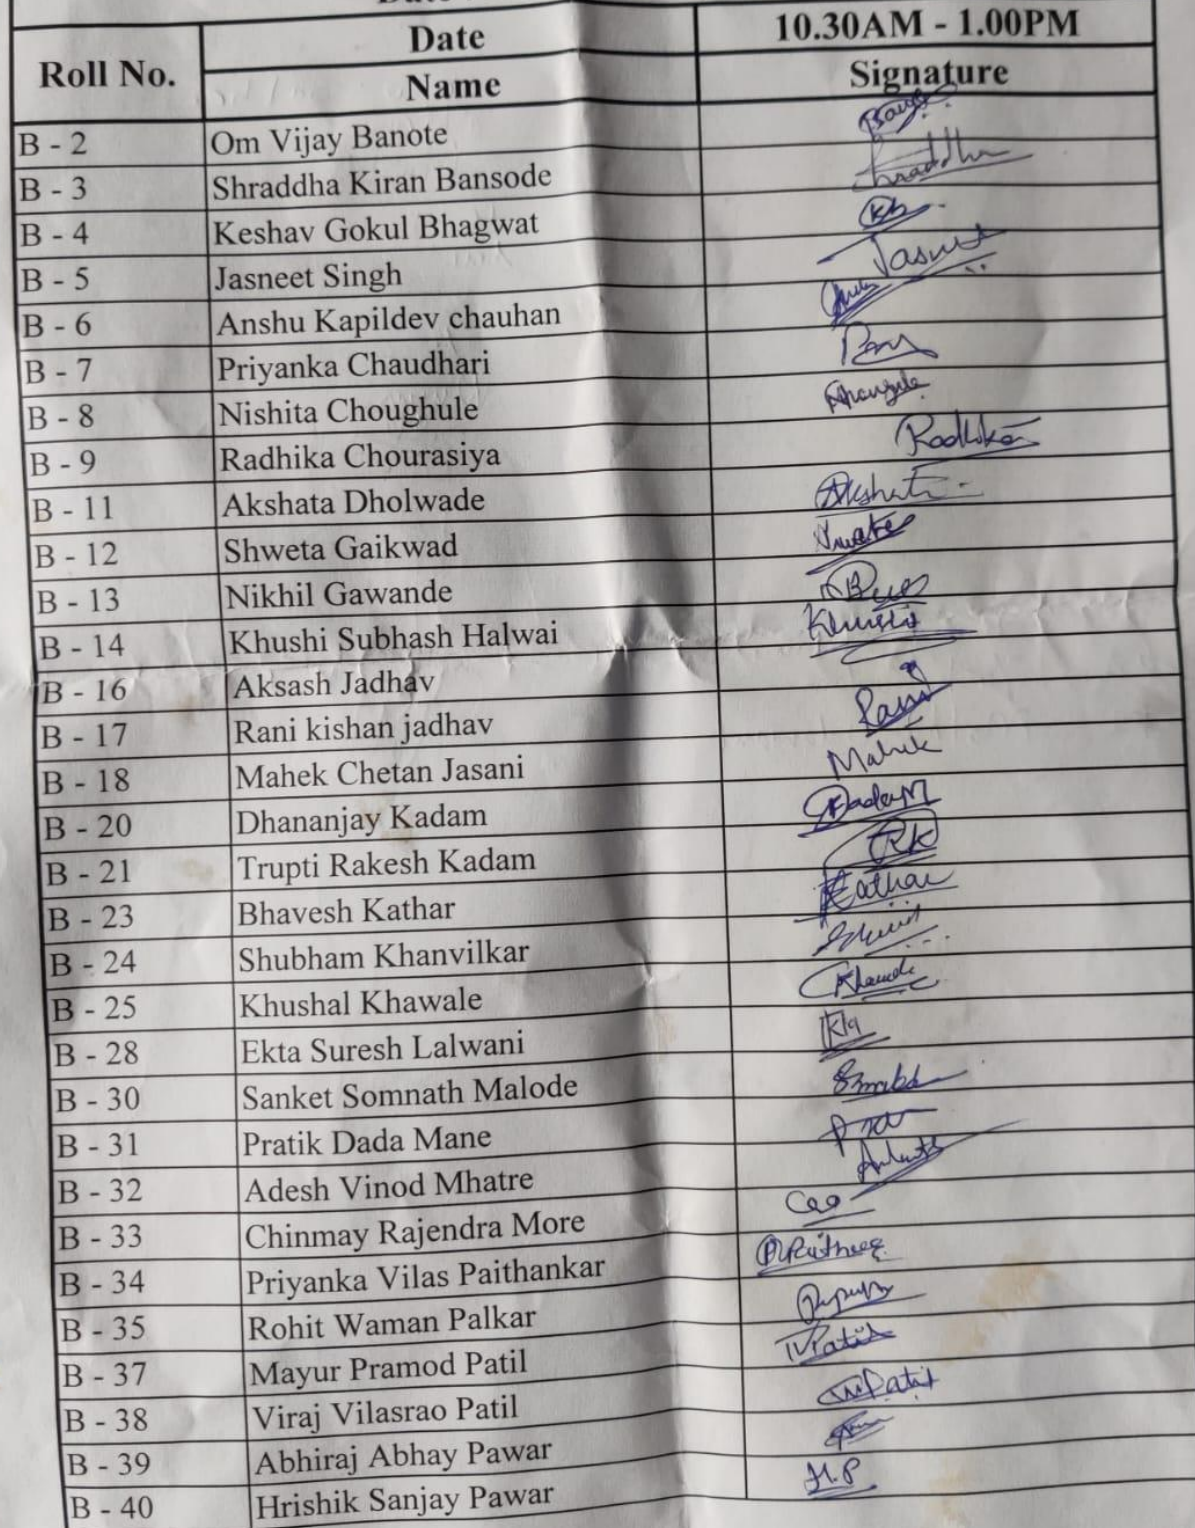 Date 10.30AM - 1.00PM
Roll No. Name Signature
B - 2 Om Vijay Banote
B - 3 Shraddha Kiran Bansode Shraddha
B - 4 Keshav Gokul Bhagwat KB
B - 5 Jasneet Singh Jasneet
B - 6 Anshu Kapildev chauhan
B - 7 Priyanka Chaudhari
B - 8 Nishita Choughule
B - 9 Radhika Chourasiya Radhika
B - 11 Akshata Dholwade Akshata
B - 12 Shweta Gaikwad
B - 13 Nikhil Gawande
B - 14 Khushi Subhash Halwai Khushi
B - 16 Aksash Jadhav
B - 17 Rani kishan jadhav Rani
B - 18 Mahek Chetan Jasani Mahek
B - 20 Dhananjay Kadam Kadam
B - 21 Trupti Rakesh Kadam TRK
B - 23 Bhavesh Kathar Kathar
B - 24 Shubham Khanvilkar
B - 25 Khushal Khawale
B - 28 Ekta Suresh Lalwani
B - 30 Sanket Somnath Malode
B - 31 Pratik Dada Mane
B - 32 Adesh Vinod Mhatre
B - 33 Chinmay Rajendra More
B - 34 Priyanka Vilas Paithankar
B - 35 Rohit Waman Palkar
B - 37 Mayur Pramod Patil Patil
B - 38 Viraj Vilasrao Patil Patil
B - 39 Abhiraj Abhay Pawar
B - 40 Hrishik Sanjay Pawar H.P